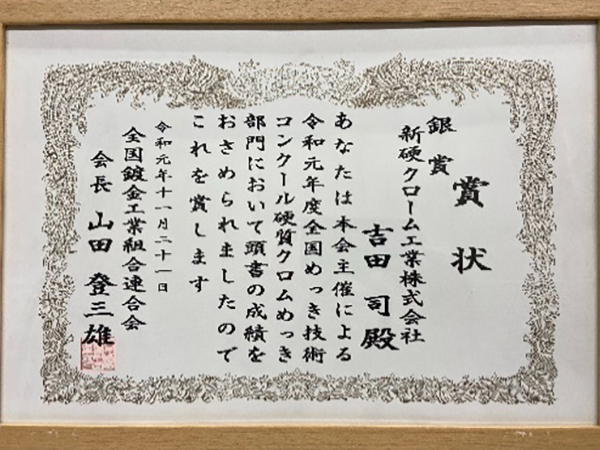 賞状
銀賞
新硬クローム工業株式会社
吉田司殿
あなたは本会主催による
令和元年度全国めっき技術
コンクール硬質クロムめっき
部門において頭書の成績を
おさめられましたので
これを賞します
令和元年十一月二十一日
全国鍍金工業組合連合会
会長 山田登三雄